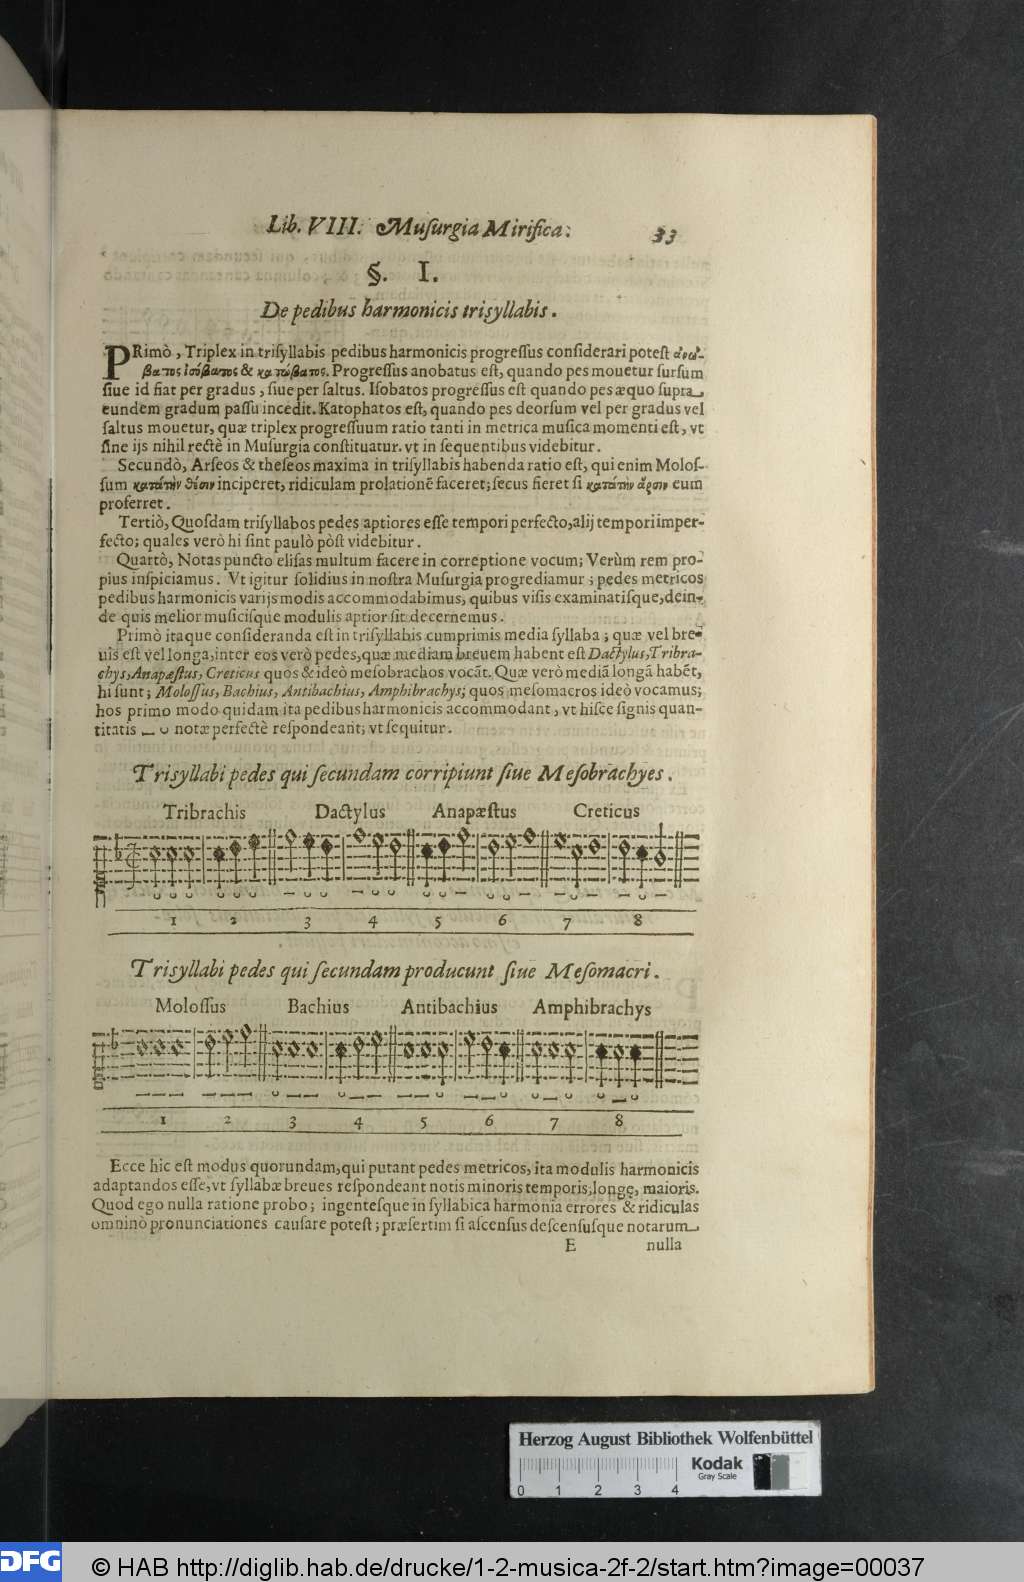 Lib. VIII. Muſurgia Mirifica. 33
§. I.
De pedibus harmonicis trisyllabis.
PRimò, Triplex in triſyllabis pedibus harmonicis progreſſus conſiderari poteſt ἀνώ-
βατος ἰσόβατος & κατώβατος. Progreſſus anobatus eſt, quando pes mouetur ſurſum
ſiue id fiat per gradus, ſiue per ſaltus. Iſobatos progreſſus eſt quando pes æquo ſupra
eundem gradum paſſu incedit. Katophatos eſt, quando pes deorſum vel per gradus vel
ſaltus mouetur, quæ triplex progreſſuum ratio tanti in metrica muſica momenti eſt, vt
ſine ijs nihil rectè in Muſurgia conſtituatur. vt in ſequentibus videbitur.
Secundò, Arſeos & theſeos maxima in triſyllabis habenda ratio eſt, qui enim Moloſ-
ſum κατὰ τὴν θέσιν inciperet, ridiculam prolationẽ faceret; ſecus fieret ſi κατὰ τὴν ἄρσιν eum
proferret.
Tertiò, Quoſdam triſyllabos pedes aptiores eſſe tempori perfecto, alij tempori imper-
fecto; quales verò hi ſint paulò pòſt videbitur.
Quartò, Notas puncto eliſas multum facere in correptione vocum; Verùm rem pro-
pius inſpiciamus. Vt igitur ſolidius in noſtra Muſurgia progrediamur; pedes metricos
pedibus harmonicis varijs modis accommodabimus, quibus viſis examinatiſque, dein-
de quis melior muſiciſque modulis aptior ſit decernemus.
Primò itaque conſideranda eſt in triſyllabis cumprimis media ſyllaba; quæ vel bre-
uis eſt vel longa, inter eos verò pedes, quæ mediam breuem habent eſt Dactylus, Tribra-
chys, Anapæſtus, Creticus quos & ideò meſobrachos vocãt. Quæ verò mediã longã habẽt,
hi ſunt; Moloſſus, Bachius, Antibachius, Amphibrachys; quos meſomacros ideò vocamus;
hos primo modo quidam ita pedibus harmonicis accommodant, vt hiſce ſignis quan-
titatis — ᴗ notæ perfectè reſpondeant; vt ſequitur.
Trisyllabi pedes qui ſecundam corripiunt ſiue Meſobrachyes.
Tribrachis Dactylus Anapæſtus Creticus
1 2 3 4 5 6 7 8
Trisyllabi pedes qui ſecundam producunt ſiue Meſomacri.
Moloſſus Bachius Antibachius Amphibrachys
1 2 3 4 5 6 7 8
Ecce hic eſt modus quorundam, qui putant pedes metricos, ita modulis harmonicis
adaptandos eſſe, vt ſyllabæ breues reſpondeant notis minoris temporis, longę, maioris.
Quod ego nulla ratione probo; ingenteſque in ſyllabica harmonia errores & ridiculas
omninò pronunciationes cauſare poteſt; præſertim ſi aſcenſus deſcenſuſque notarum
E nulla
Herzog August Bibliothek Wolfenbüttel
Kodak
Gray Scale
0 1 2 3 4
DFG © HAB http://diglib.hab.de/drucke/1-2-musica-2f-2/start.htm?image=00037